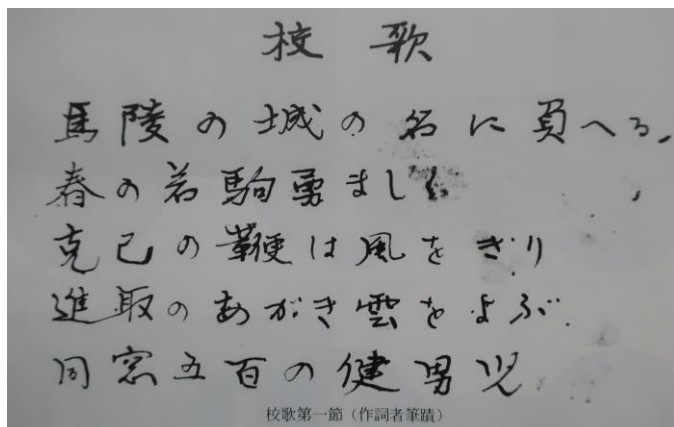 校歌
馬陵の城の名に負へる、
春の若駒勇ましく
克己の鞭は風をきり
進取のあがき雲をよぶ
同窓五百の健男児
校歌第一節（作詞者筆蹟）